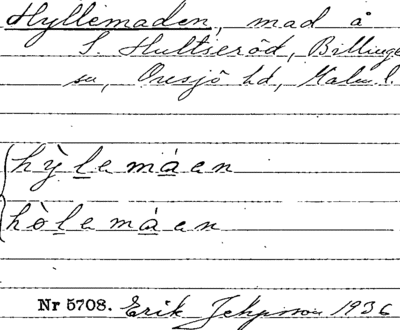 Hyllemaden, mad å
S. Hultseröd, Billinge
sn, Onsjö hd, Malm. l.
hỳl̲emá̲an
hòl̲emá̲an
Nr 5708. Erik Jeppsson 1936